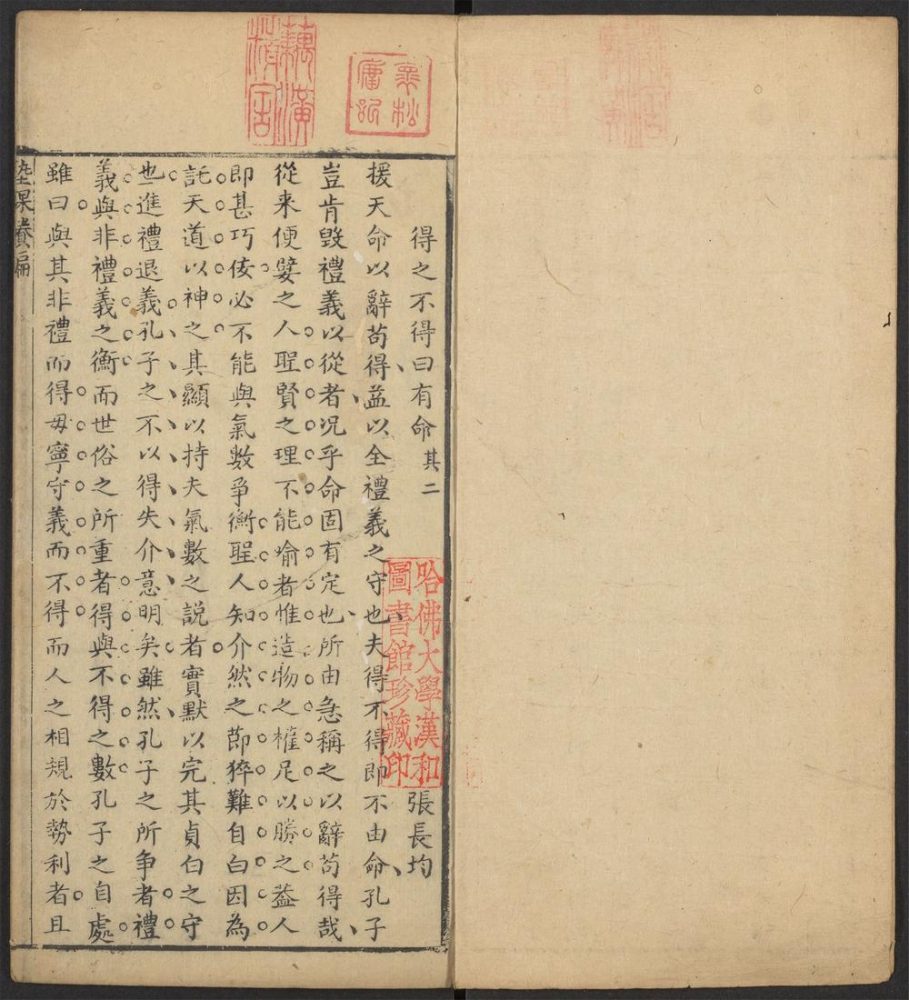 得之不得曰有命 其二 張長均
援天命以辭苟得益以全禮義之守也夫得不得即不由命孔子
豈肯毀禮義以從者況乎命固有定也所由急稱之以辭苟得哉
從来便嬖之人聖賢之理不能喻者惟造物之權足以勝之益人
即甚巧佞必不能與氣數爭衡聖人知介然之節猝難自白因為
託天道以神之其顯以持夫氣數之説者實默以完其貞白之守
也進禮退義孔子之不以得失介意明矣雖然孔子之所爭者禮
義與非禮義之衡而世俗之所重者得與不得之數孔子之自處
雖曰與其非禮而得毋寧守義而不得而人之相規於勢利者且
哈佛大學漢和
圖書館珍藏印